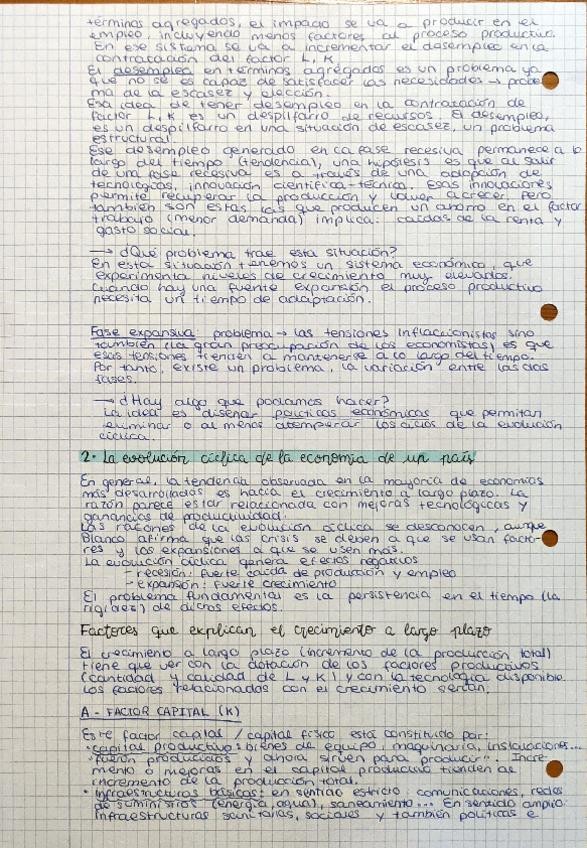 términos agregados, el impacto se va a producir en el
empleo, incluyendo menos factores al proceso productivo.
En ese sistema se va a incrementar el desempleo en la
contratación del factor L, K.
El desempleo en términos agregados es un problema ya
que no se es capaz de satisfacer las necesidades → proble
ma de la escasez y elección.
Esa idea de tener desempleo en la contratación de
factor L, K es un despilfarro de recursos. El desempleo,
es un despilfarro en una situación de escasez, un problema
estructural.
Ese desempleo generado en la fase recesiva permanece a lo
largo del tiempo (tendencia), una hipótesis es que al salir
de una fase recesiva es a través de una adopción de
tecnologías, innovación científica-técnica. Esas innovaciones
permite recuperar la producción y volver a crecer pero
también son estas las que producen un ahorro en el factor
trabajo (menor demanda) implica: caídas de la renta y
gasto social.
→ ¿Qué problema trae esta situación?
En esta situación tenemos un sistema económico, que
experimenta niveles de crecimiento muy elevados.
Cuando hay una fuente expansión el proceso productivo
necesita un tiempo de adaptación.
Fase expansiva: problema → las tensiones inflaccionistas sino
también (la gran preocupación de los economistas) es que
esas tensiones tienden a mantenerse a lo largo del tiempo.
Por tanto, existe un problema, la variación entre las dos
fases.
→ ¿Hay algo que podamos hacer?
La idea es diseñar políticas económicas que permitan
eliminar o al menos atemperar los ciclos de la evolución
cíclica.
2. La evolución cíclica de la economía de un país
En general, la tendencia observada en la mayoría de economías
más desarrolladas es hacia el crecimiento a largo plazo. La
razón parece estar relacionada con mejoras tecnológicas y
ganancias de productividad.
Las razones de la evolución cíclica se desconocen, aunque
Blanco afirma que las crisis se deben a que se usan facto-
res y las expansiones a que se usen más.
La evolución cíclica genera efectos negativos
- recesión: fuerte caída de producción y empleo
- expansión: fuerte crecimiento
El problema fundamental es la persistencia en el tiempo (la
rigidez) de dichos efectos.
Factores que explican el crecimiento a largo plazo
El crecimiento a largo plazo (incremento de la producción total)
tiene que ver con la dotación de los factores productivos
(cantidad y calidad de L y K) y con la tecnología disponible.
Los factores relacionados con el crecimiento serían,
A - FACTOR CAPITAL (K)
Este factor capital / capital físico está constituido por:
· capital productivo: bienes de equipo, maquinaria, instalaciones...
"fueron producidos y ahora sirven para producir". Incre-
mento o mejoras en el capital productivo tienden al
incremento de la producción total.
· Infraestructuras básicas: en sentido estricto: comunicaciones, redes
de suministros (energía, agua), saneamiento... En sentido amplio:
infraestructuras sanitarias, sociales y también políticas e